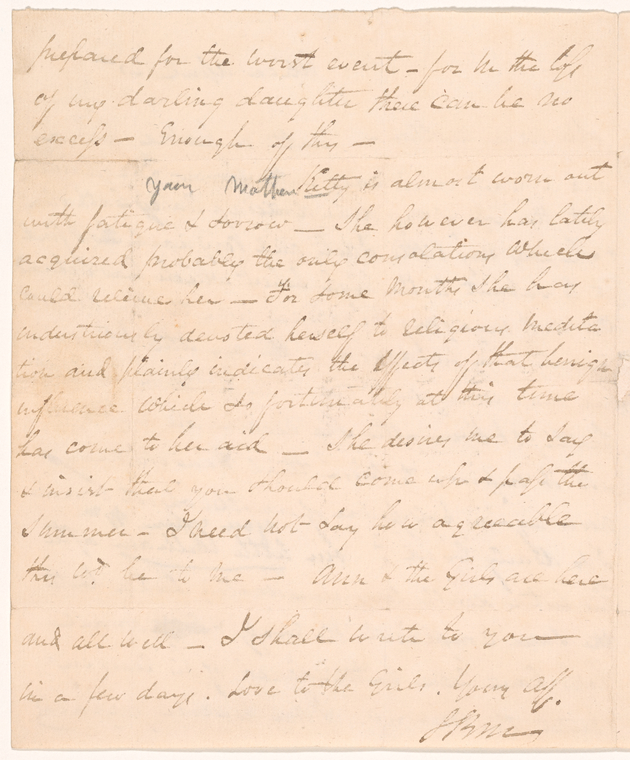 prepared for the worst event – for in the loss
of my darling daughter there can be no
excess – Enough of this –
your Mother Kitty is almost worn out
with fatigue & sorrow – She however has lately
acquired probably the only consolations which
could relieve her – For some months she has
industriously devoted herself to religious medita
tion and plainly indicates the effects of that benign
influence which so fortunately at this time
has come to her aid – She desires me to say
& insist that you should come up & pass the
summer – I need not say how agreeable
this wd. be to me – Ann & the Girls are here
and all well – I shall write to you
in a few days. Love to the Girls. Yours aff.